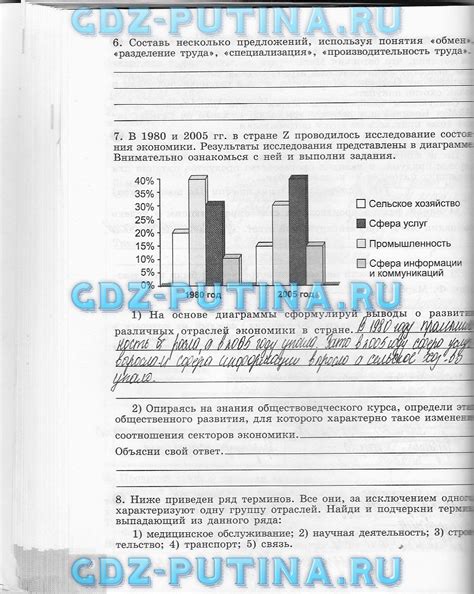 GDZ-PUTINA.RU
6. Составь несколько предложений, используя понятия «обмен»,
«разделение труда», «специализация», «производительность труда».
7. В 1980 и 2005 гг. в стране Z проводилось исследование состоя
ния экономики. Результаты исследования представлены в диаграмме.
Внимательно ознакомься с ней и выполни задания.
40%
35%
30%
25%
20%
15%
10%
5%
0%
1980 год
2005 год
Сельское хозяйство
Сфера услуг
Промышленность
Сфера информации
и коммуникаций
GDZ-PUTINA.RU
1) На основе диаграммы сформулируй выводы о развити
различных отраслей экономики в стране. В 1980 году промышлен
ность росла, а в 2005 году упала, зато в 2005 году сфера услуг
возросла и сфера информации возросла а сельское хоз-во
упало.
2) Опираясь на знания обществоведческого курса, определи эта
общественного развития, для которого характерно такое изменени
соотношения секторов экономики.
Объясни свой ответ.
8. Ниже приведен ряд терминов. Все они, за исключением одного
характеризуют одну группу отраслей. Найди и подчеркни термин
выпадающий из данного ряда:
1) медицинское обслуживание; 2) научная деятельность; 3) строи
тельство; 4) транспорт; 5) связь.
GDZ-PUTINA.RU